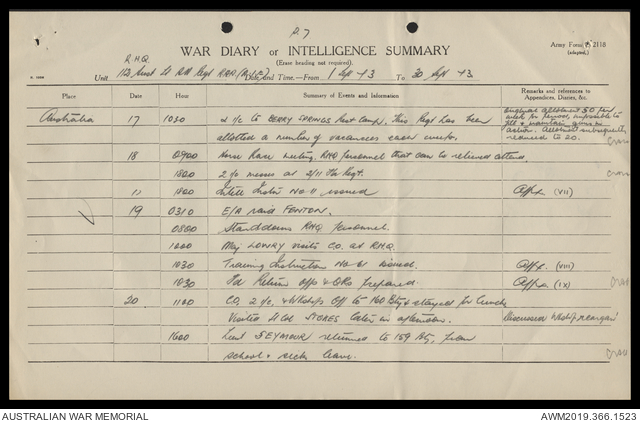 P. 7
WAR DIARY or INTELLIGENCE SUMMARY
(Erase heading not required).
Army Form C 2118
(adapted.)
R.H.Q.
Unit 112 Aust Lt AA Regt RAA (M) (AIF) Date and Time.—From 1 Sept 43 To 30 Sept 43
Place Date Hour Summary of Events and Information Remarks and references to Appendices, Diaries, &c.
Australia 17 1030 2 i/c to BERRY SPRINGS Rest Camp. This Regt has been
allotted a number of vacancies each week.
Original allotment 50 per
week for period, impossible to
fill & maintain guns in
action. Allotment subsequently
reduced to 20.
18 0900 Horse Race meeting. RHQ personnel that can be relieved attend.
1800 2 i/c messes at 2/11 Fd Regt.
1800 Intell Instn No 11 issued Appx (VII)
19 0310 E/A raid FENTON.
0800 Stand down RHQ personnel.
1000 Maj LOWRY visits C.O. at RHQ.
1030 Training Instruction No 61 issued. Appx (VIII)
1030 Fd Return Offs & ORs prepared. Appx (IX)
20 1100 CO, 2 i/c, & Wkshops Off to 160 Bty & stayed for lunch
Visited Lt Col STOKES later in afternoon. Discussed Wkshop reorgan
1600 Lieut SEYMOUR returned to 159 Bty, from
school & sick leave.
AUSTRALIAN WAR MEMORIAL
AWM2019.366.1523